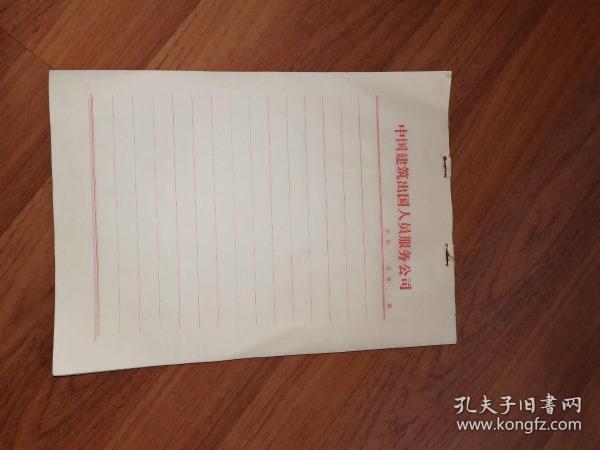 中国建筑出国人员服务公司
字第 号 第 页
孔夫子旧书网
www.kongfz.com